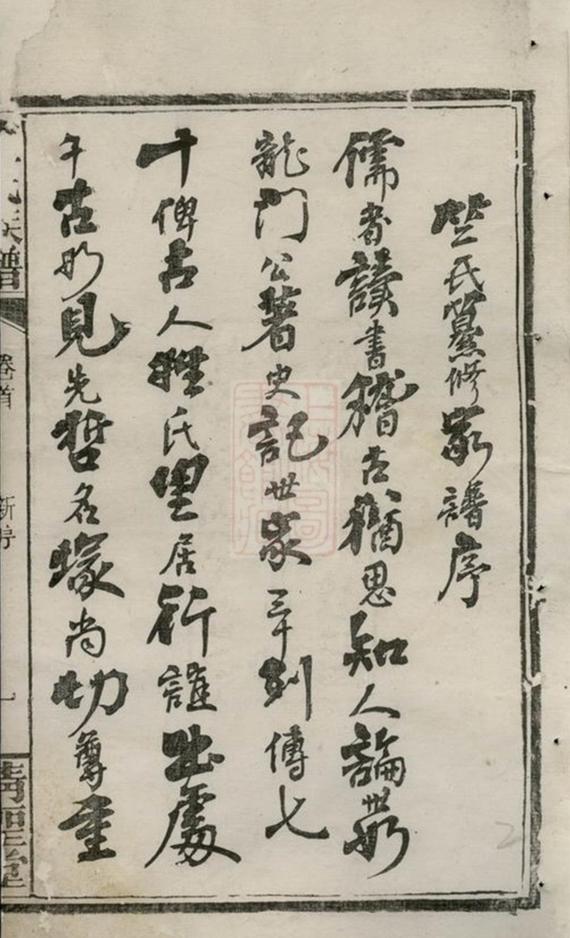 竺氏纂修家譜序
儒者讀書稽古猶思知人論世如
龍門公著史記世家三十列傳七
十俾古人姓氏里居行誼出處
千古如見先哲名塚尚切尊重
氏族譜
卷首
新序
一
聖堂
2